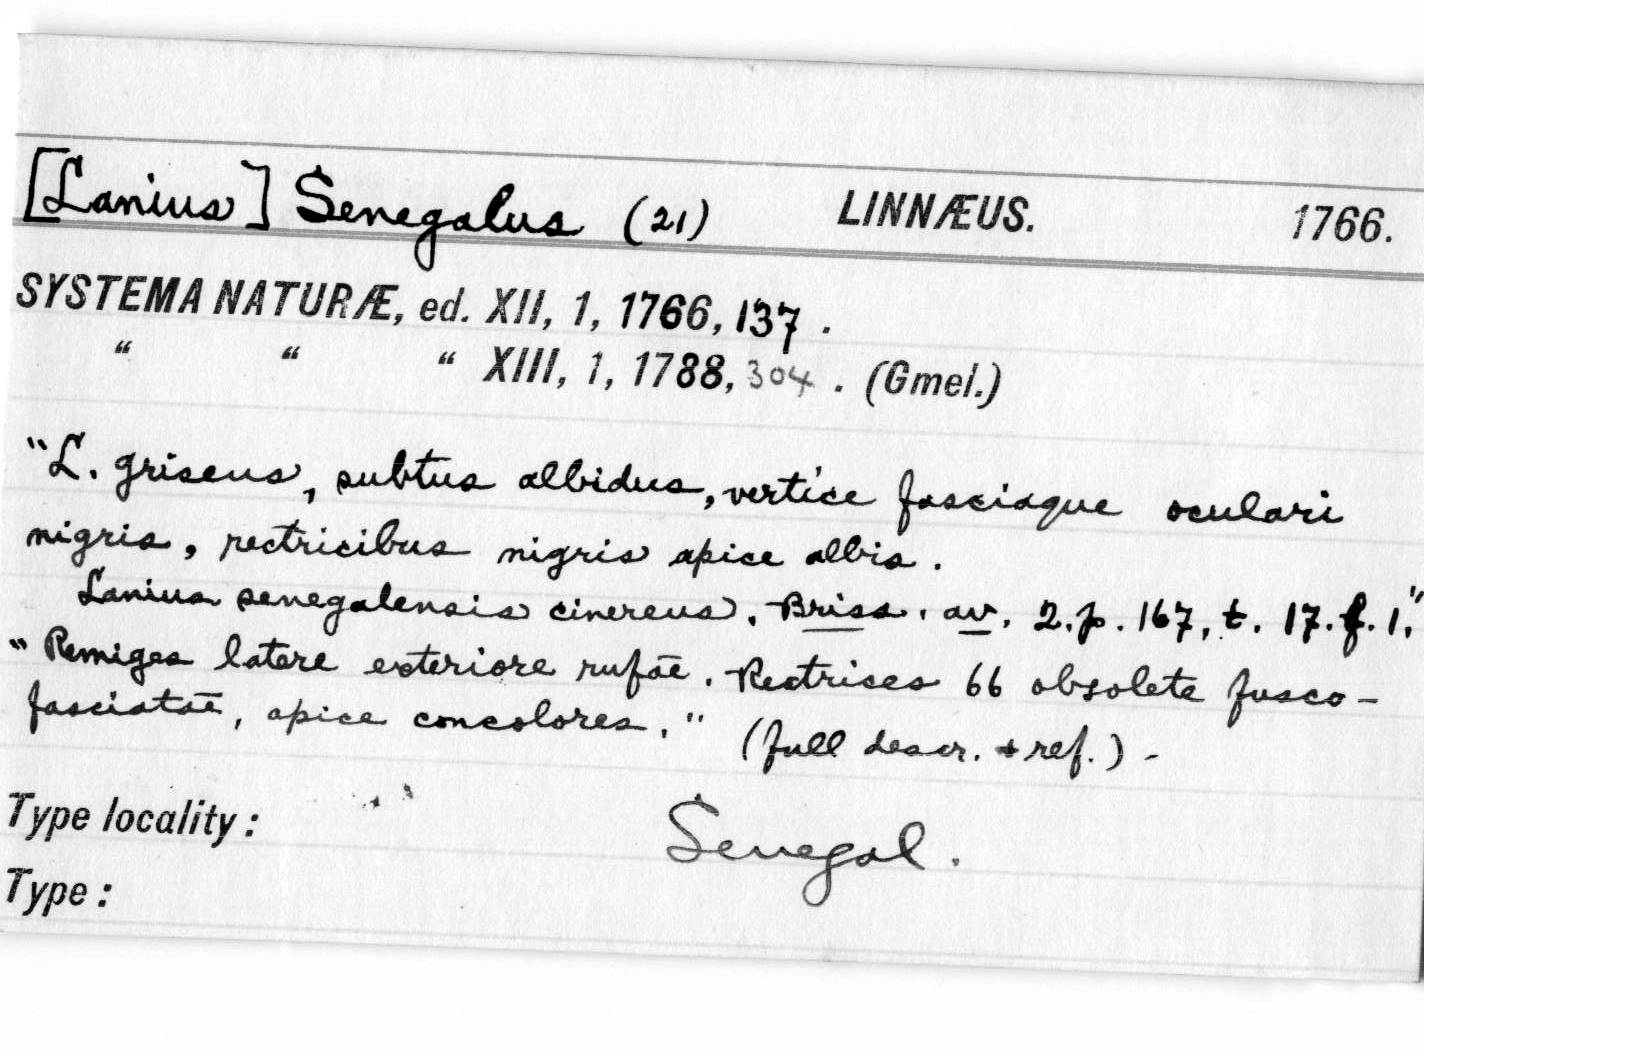 [Lanius] Senegalus (21) LINNÆUS. 1766.
SYSTEMA NATURÆ, ed. XII, 1, 1766, 137.
" " " XIII, 1, 1788, 304. (Gmel.)
"L. griseus, subtus albidus, vertice fasciaque oculari
nigris, rectricibus nigris apice albis.
Lanius senegalensis cinereus. Briss. av. 2. p. 167, t. 17. f. 1."
"Remiges latere exteriore rufae. Rectrices 66 obsolete fusco-
fasciatae, apice concolores." (full descr. & ref.) -
Type locality: Senegal.
Type: